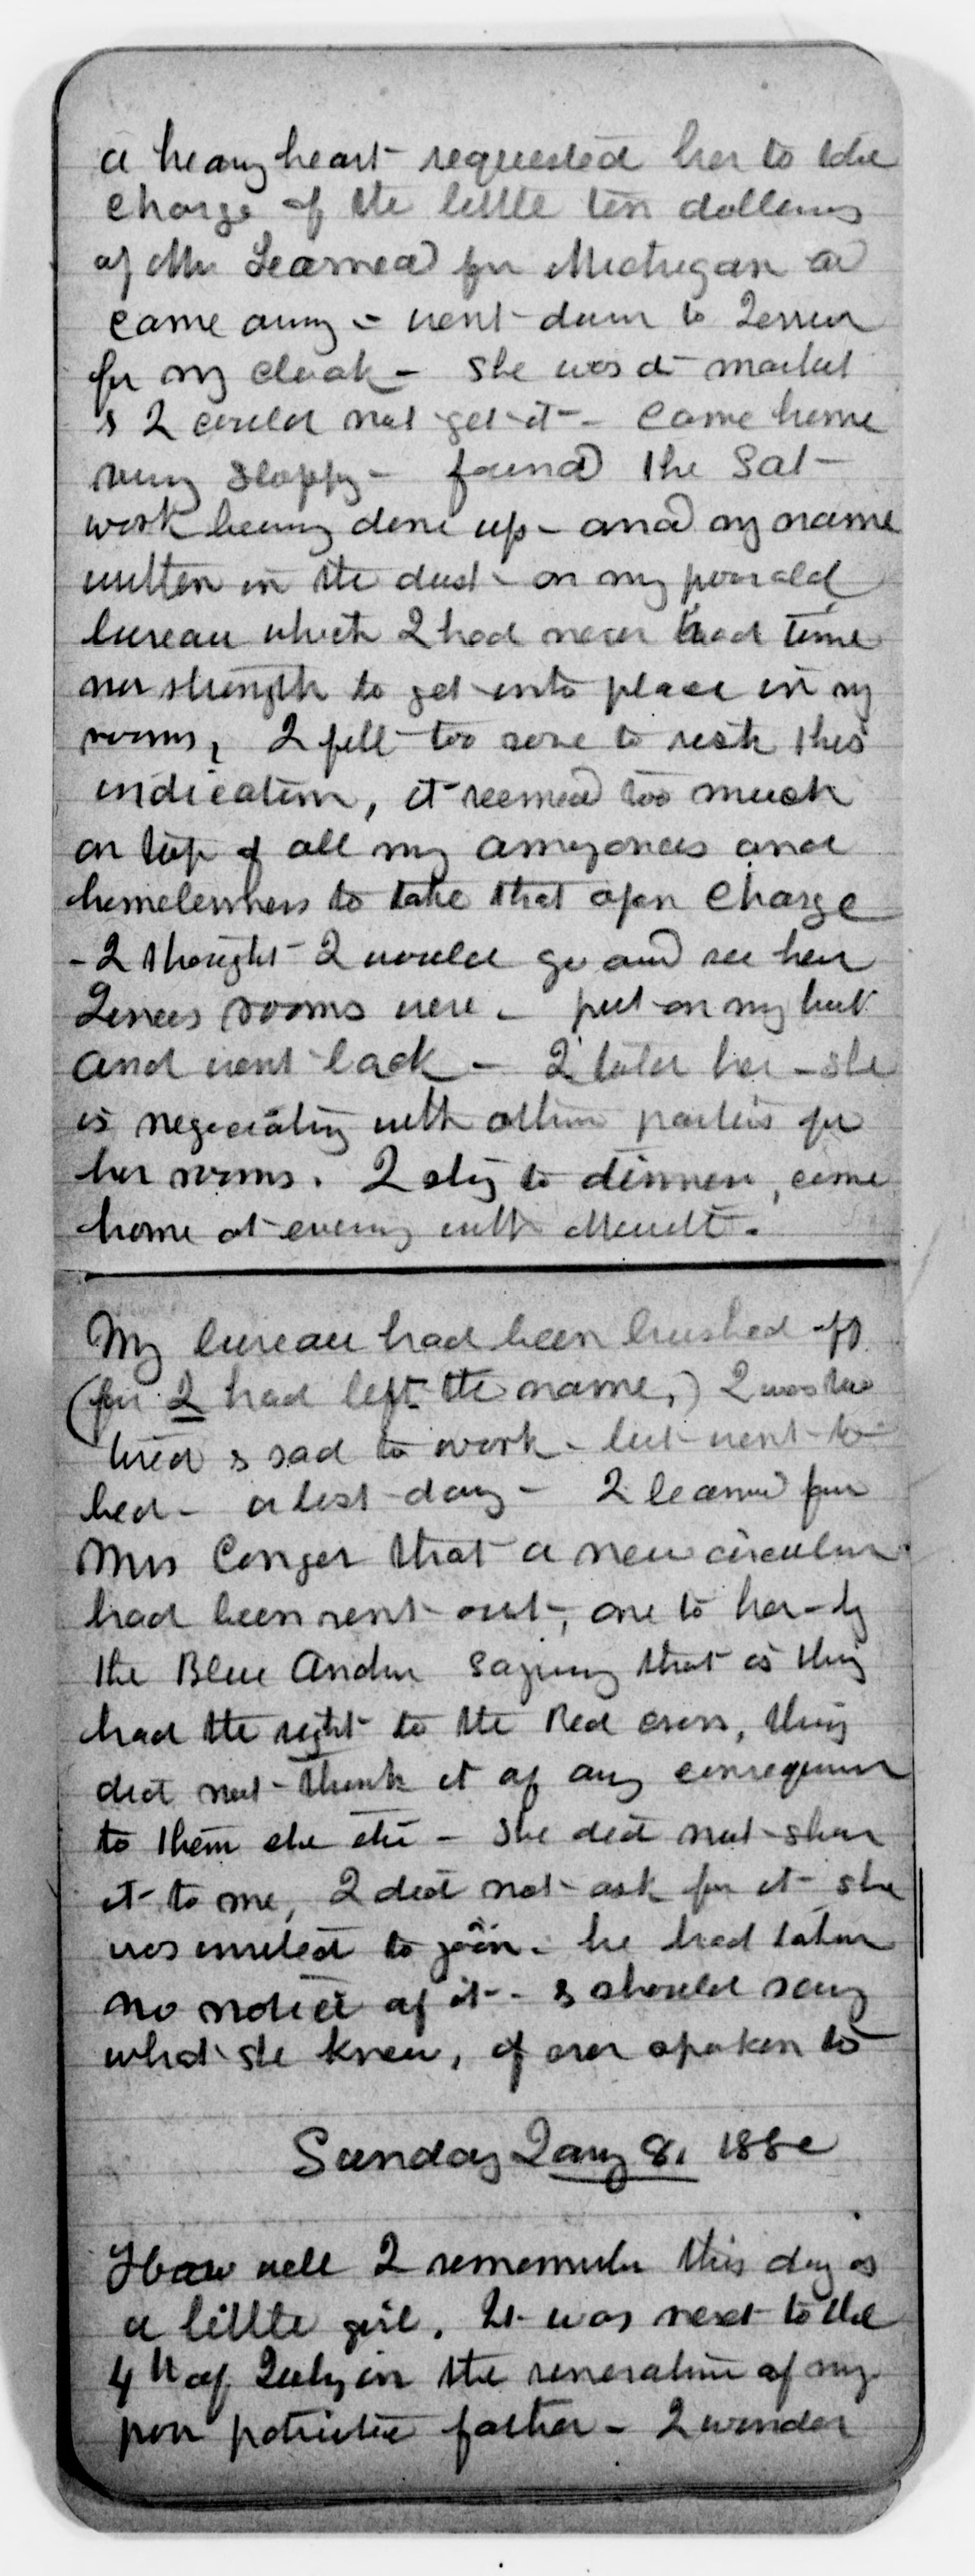 a heavy heart requested her to take
charge of the little ten dollars
of Mr Learned for Michigan a
came away - went down to
for my cloak - She was at market
& I could not get it - Came home
very sloppy - found the Sat
work being done up - and my name
written in the dust - on my poor old
bureau which I had never had time
nor strength to get into place in my
rooms, I felt too sore to risk this
indication, it seemed too much
on top of all my annoyances and
homelessness to take that open charge
- I thought I would go and see how
rooms were - put on my hat
and went back - I told her - she
is negociating with other parties for
her rooms. I stay to dinner, come
home at evening with Merritt.
My bureau had been brushed off
(for I had left the name,) I was too
tired & sad to work - but went to
bed - a lost day - I learned from
Mrs Conger that a new circular
had been sent out, one to her - by
the Blue Anchor saying that as they
had the right to the Red cross, they
did not think it of any consequence
to them - She did not show
it to me, I did not ask for it - she
was invited to join - he had taken
no notice of it - & should say
what she knew, if ever spoken to
Sunday Jany 8, 188
How well I remember this day as
a little girl. It was next to the
4th of July in the veneration of my
poor patriotic father - I wonder